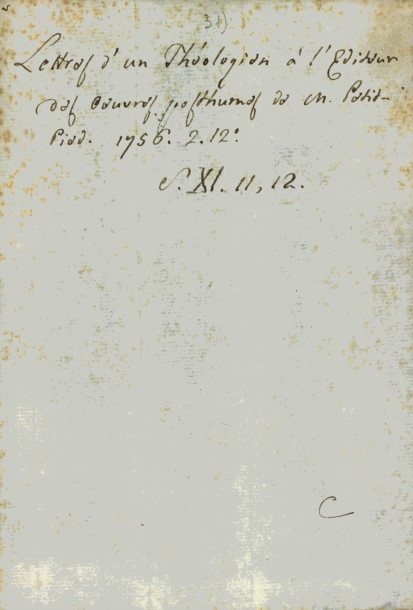 31)
Lettres d'un Théologien à l'Editeur
des Oeuvres posthumes de M. Petit-
Pied. 1756. 2. 12°.
S. XI. 11, 12.
C